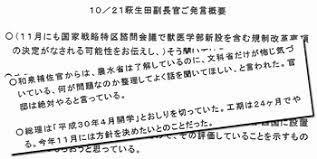 10/21萩生田副長官ご発言概要
○(11月にも国家戦略特区諮問会議で獣医学部新設を含む規制改革事項
の決定がなされる可能性をお伝えし、)そう聞いている。
○和泉補佐官からは、農水省は了解しているのに、文科省だけが怖じ気づ
いている、何が問題なのか整理してよく話を聞いてほしい、と言われた。官
邸は絶対やると言っている。
○総理は「平成30年4月開学」とおしりを切っていた。工期は24ヶ月でや
る。今年11月には方針を決めたいとのことだった。
に国家
、その評価していることを示すもの
うおうと思っている。